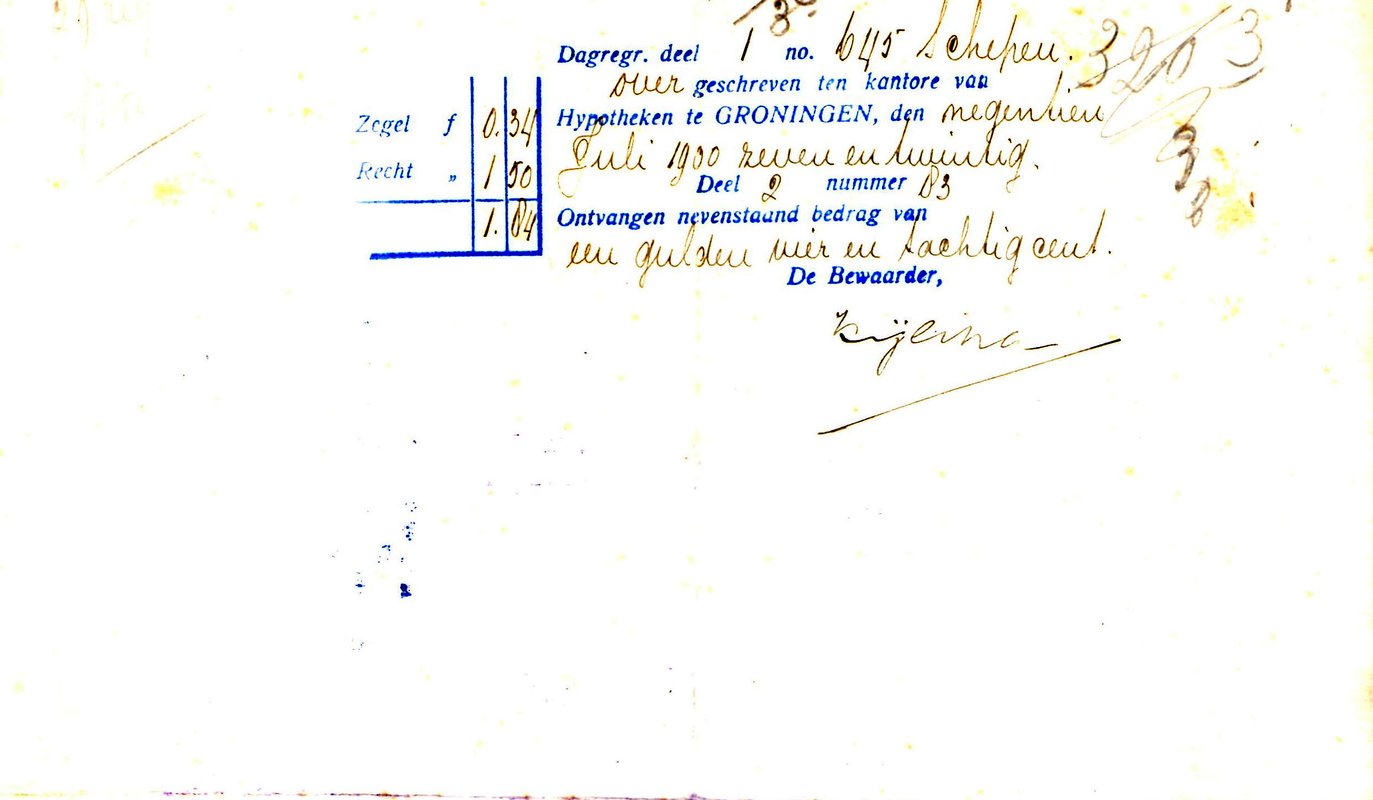 Dagregr. deel 1 no. 645 Schepen.
over geschreven ten kantore van
Hypotheken te GRONINGEN, den negentien
Juli 1900 zeven en twintig.
Deel 2 nummer 83
Ontvangen nevenstaand bedrag van
een gulden vier en tachtig cent.
De Bewaarder,
Zegel f 0.34
Recht „ 1 50
1. 84
3203
3
8